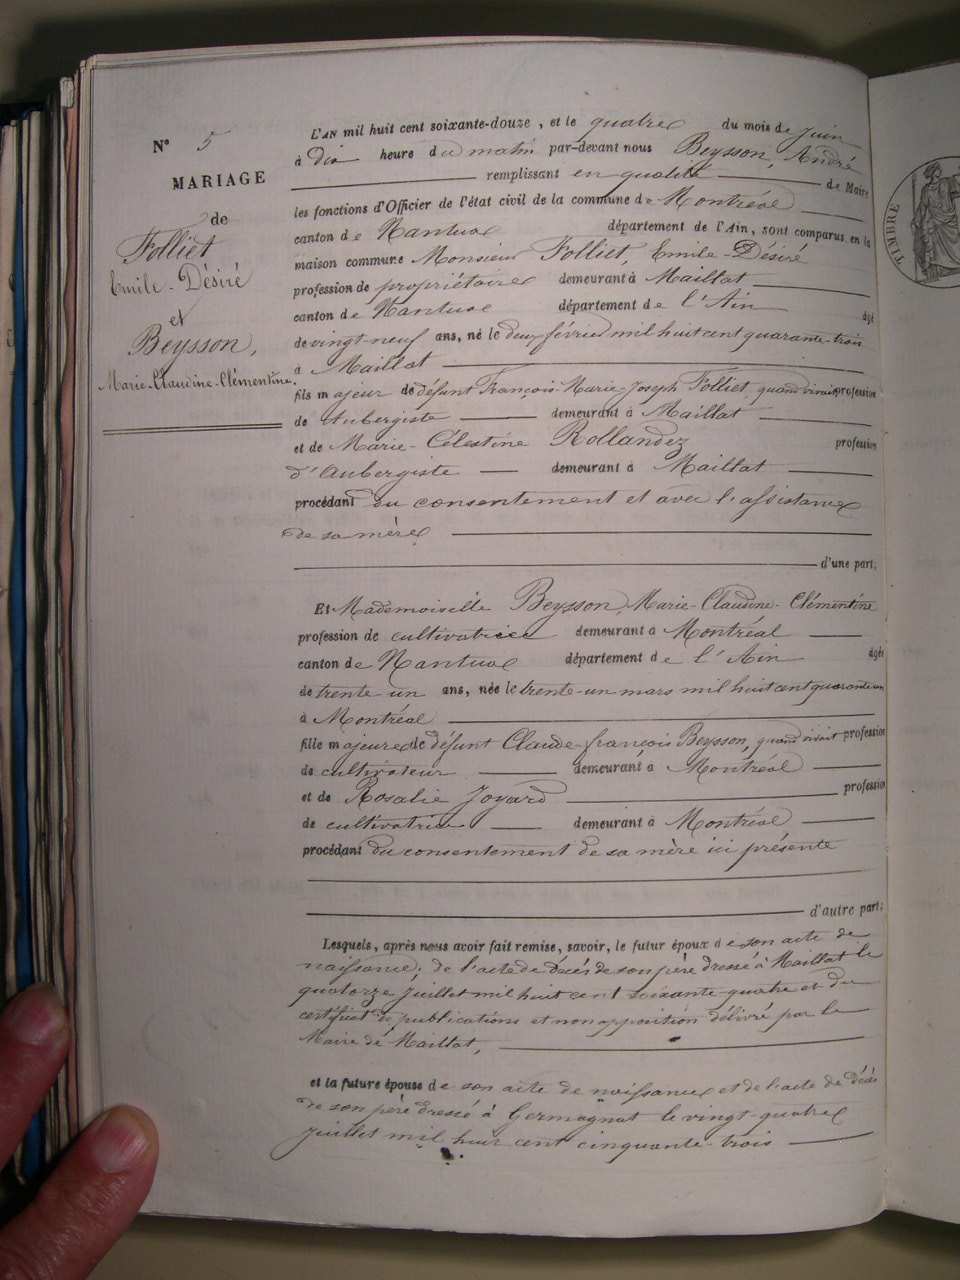 N° 5
MARIAGE
de
Folliet
Emile-Désiré
et
Beysson,
Marie-Claudine-Clémentine.
L'AN mil huit cent soixante-douze, et le quatre du mois de Juin
à dix heure du matin par-devant nous Beysson, André
remplissant en qualité de Maire
les fonctions d'Officier de l'état civil de la commune de Montréal
canton de Nantua département de l'Ain, sont comparus en la
maison commune Monsieur Folliet, Emile-Désiré
profession de propriétaire demeurant à Maillat
canton de Nantua département de l'Ain âgé
de vingt neuf ans, né le deux février mil huit cent quarante-trois
à Maillat
fils majeur de défunt François-Marie-Joseph Folliet, quand vivait profession
de Aubergiste demeurant à Maillat
et de Marie-Célestine Rollandez profession
d'Aubergiste demeurant à Maillat
procédant du consentement et avec l'assistance
de sa mère
d'une part;
Et Mademoiselle Beysson, Marie-Claudine-Clémentine
profession de cultivatrice demeurant à Montréal
canton de Nantua département de l'Ain âgée
de trente-un ans, née le trente-un mars mil huit cent quarante un
à Montréal
fille majeure de défunt Claude-françois Beysson, quand vivait profession
de cultivateur demeurant à Montréal
et de Rosalie Joyard profession
de cultivatrice demeurant à Montréal
procédant du consentement de sa mère ici présente
d'autre part;
Lesquels, après nous avoir fait remise, savoir, le futur époux de son acte de
naissance; de l'acte de décès de son père dressé à Maillat le
quatorze Juillet mil huit cent soixante quatre et du
certificat de publications et non apposition délivré par le
Maire de Maillat,
et la future épouse de son acte de naissance et de l'acte de décès
de son père dressé à Germagnat le vingt-quatre
juillet mil huit cent cinquante-trois
TIMBRE